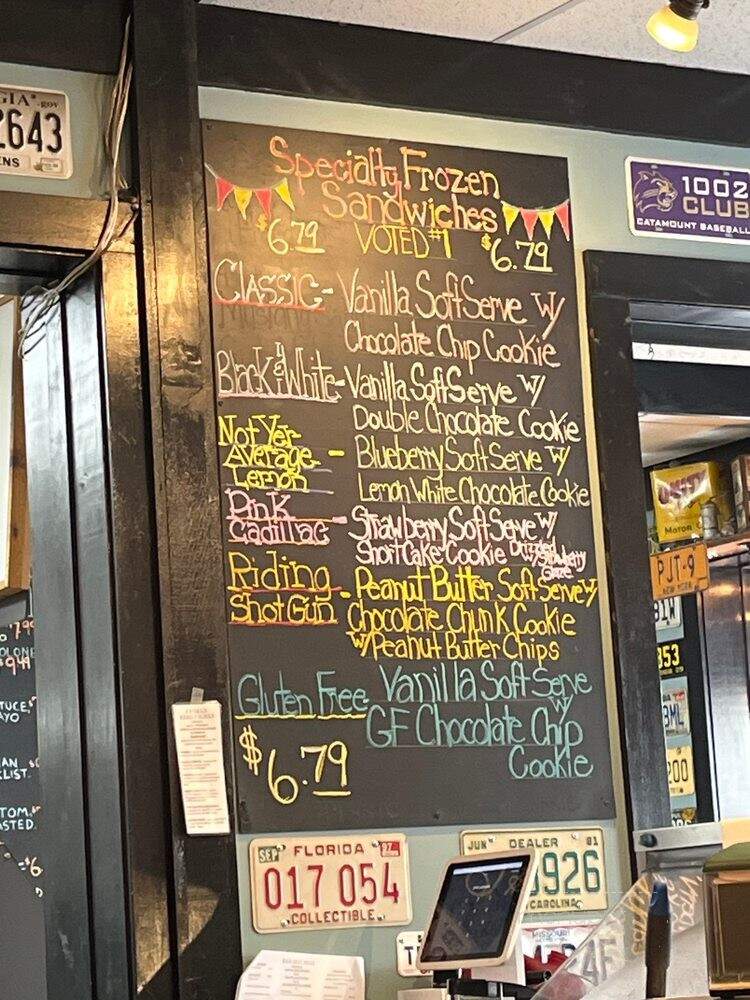 GIA .gov
2643
ENS
Specialty Frozen
Sandwiches
$6.79 VOTED #1 $6.79
CLASSIC - Vanilla Soft Serve W/
Chocolate Chip Cookie
Black & White - Vanilla Soft Serve W/
Double Chocolate Cookie
Not Yer
Average - Blueberry Soft Serve W/
Lemon Lemon White Chocolate Cookie
Pink
Cadillac - Strawberry Soft Serve W/
Short Cake Cookie Drizzled W/ Strawberry
Glaze
Riding
Shot Gun - Peanut Butter Soft Serve W/
Chocolate Chunk Cookie
W/ Peanut Butter Chips
Gluten Free Vanilla Soft Serve
W/
GF Chocolate Chip
Cookie
$6.79
1002
CLUB
CATAMOUNT BASEBALL
MOTOR
PJT-9
NEW YORK
353
3ML
200
TUCE,
AYO
LIST.
TOM.
ASTED.
$6
SEP FLORIDA 97
017 054
COLLECTIBLE
JUN DEALER 81
3926
CAROLINA
MISSOURI
4F